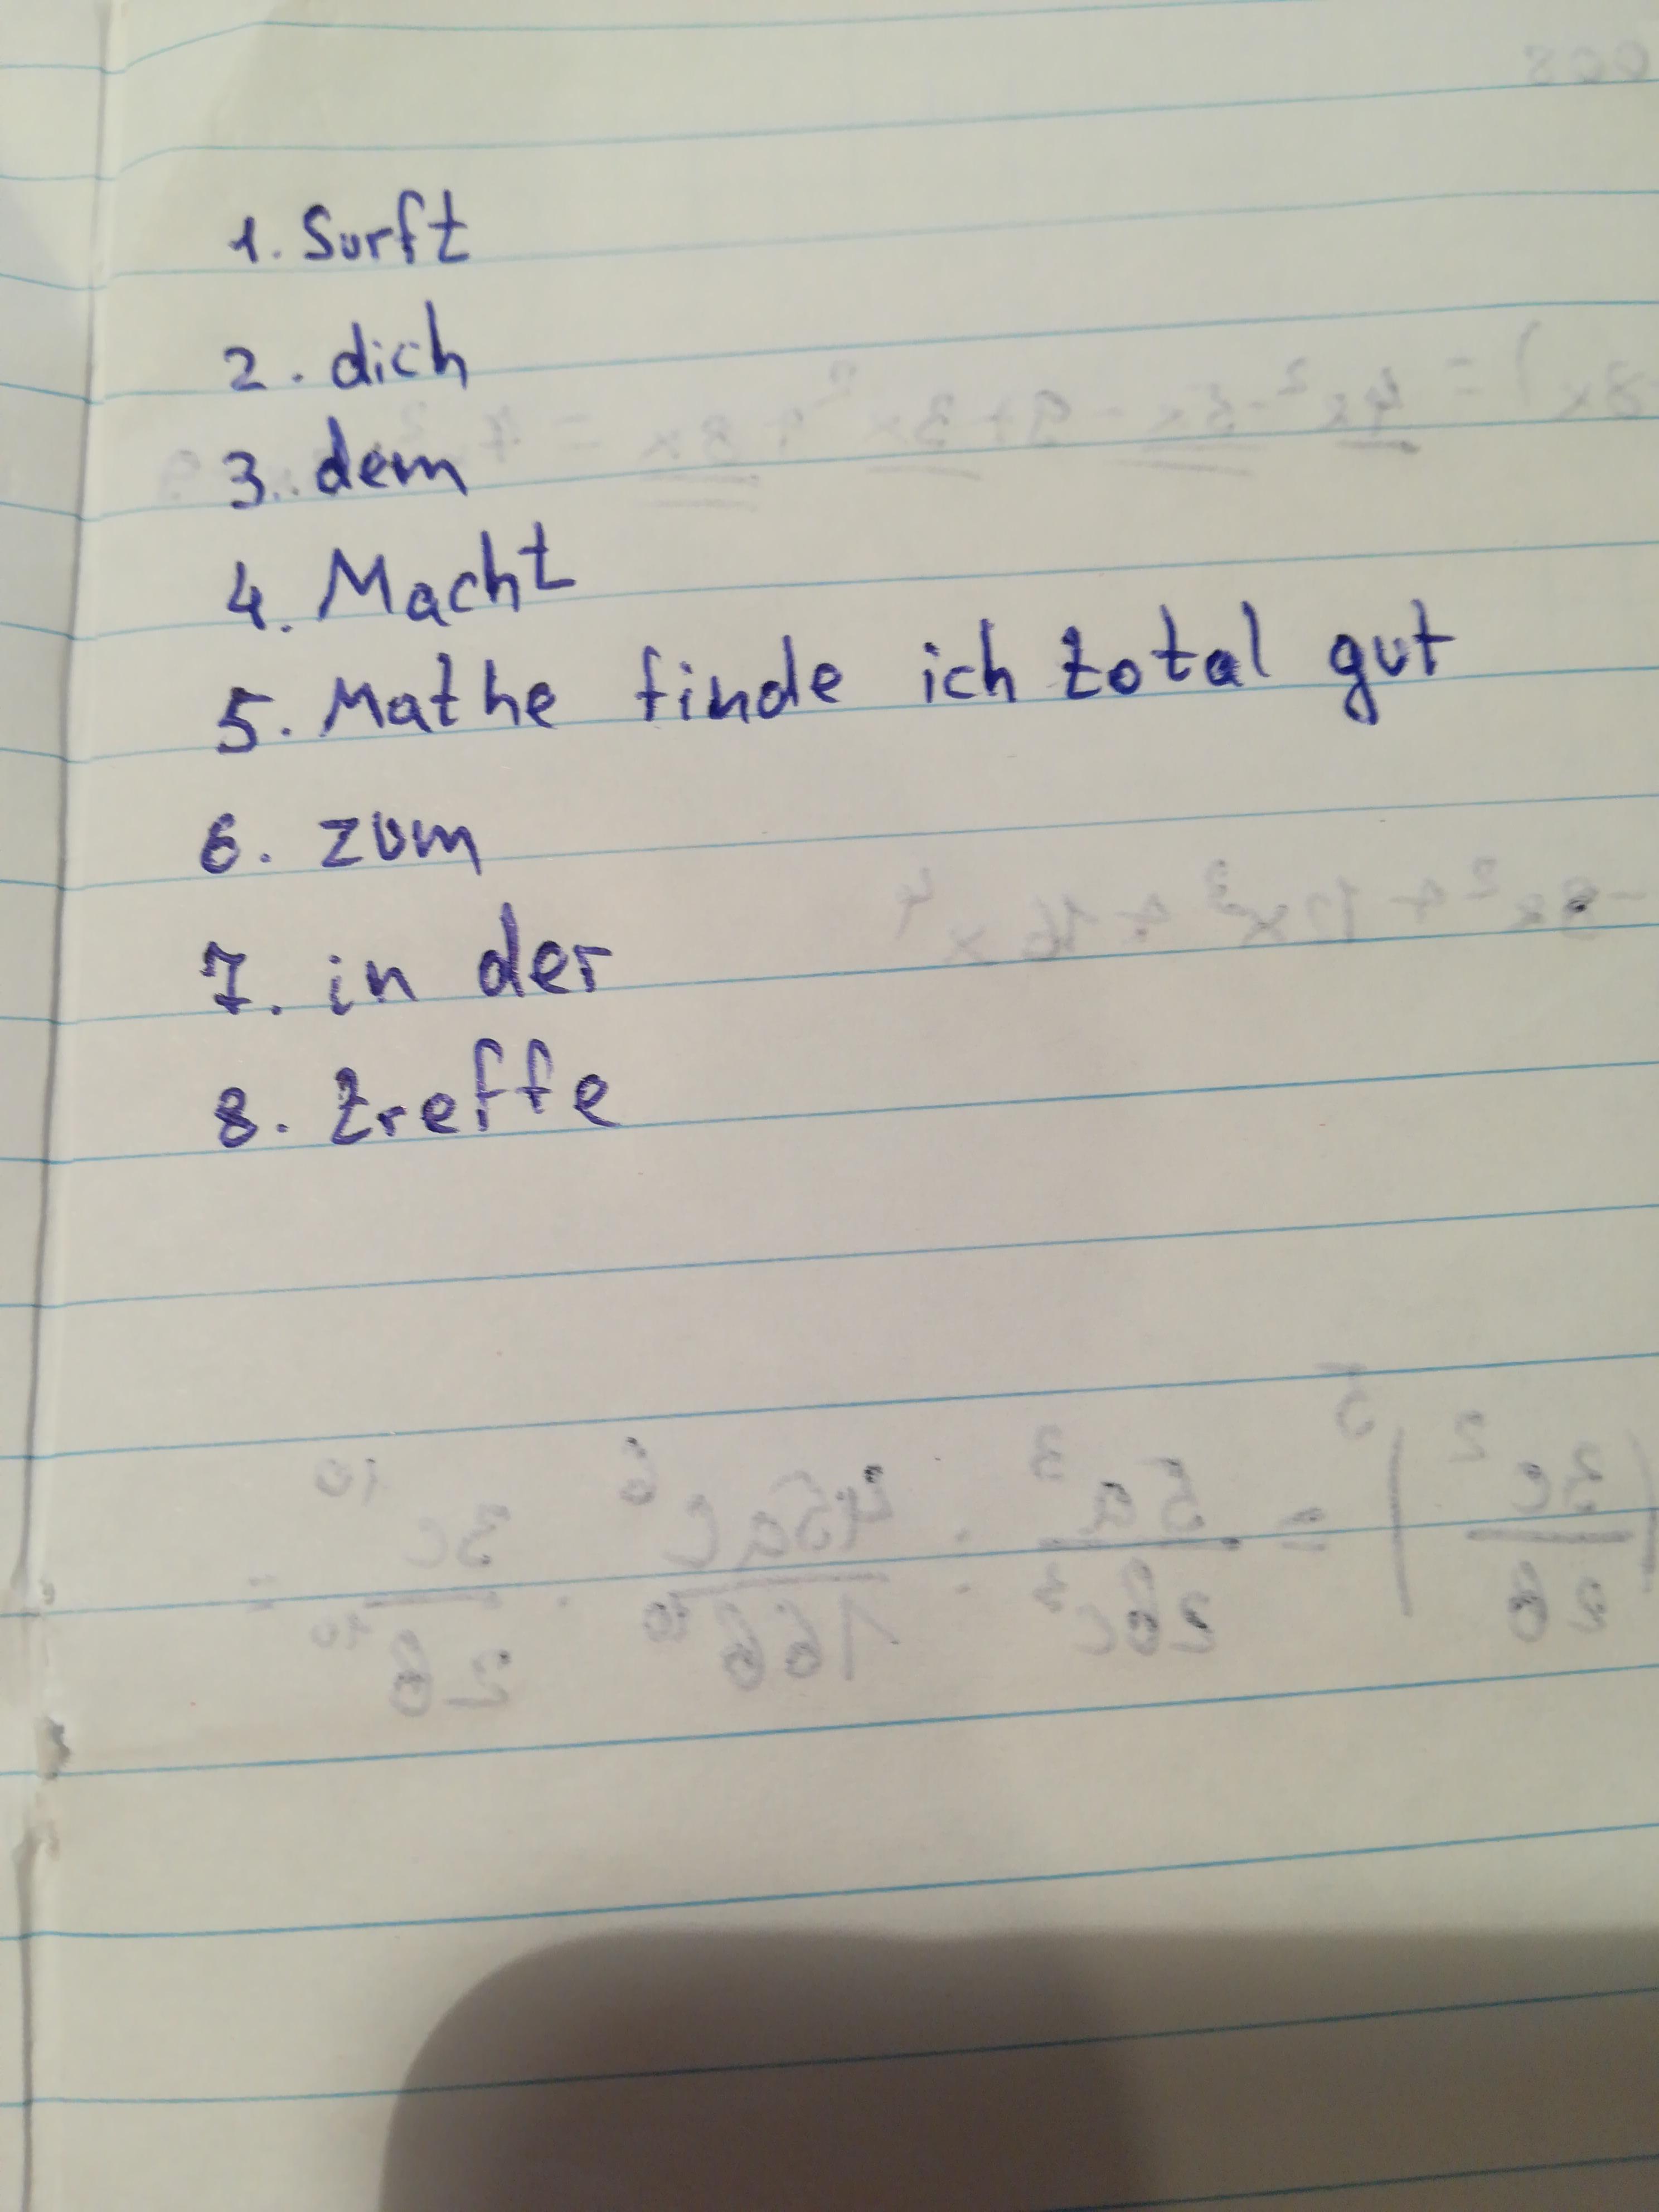 1. Surft
2. dich
3. dem
4. Macht
5. Mathe finde ich total gut
6. zum
7. in der
8. treffe